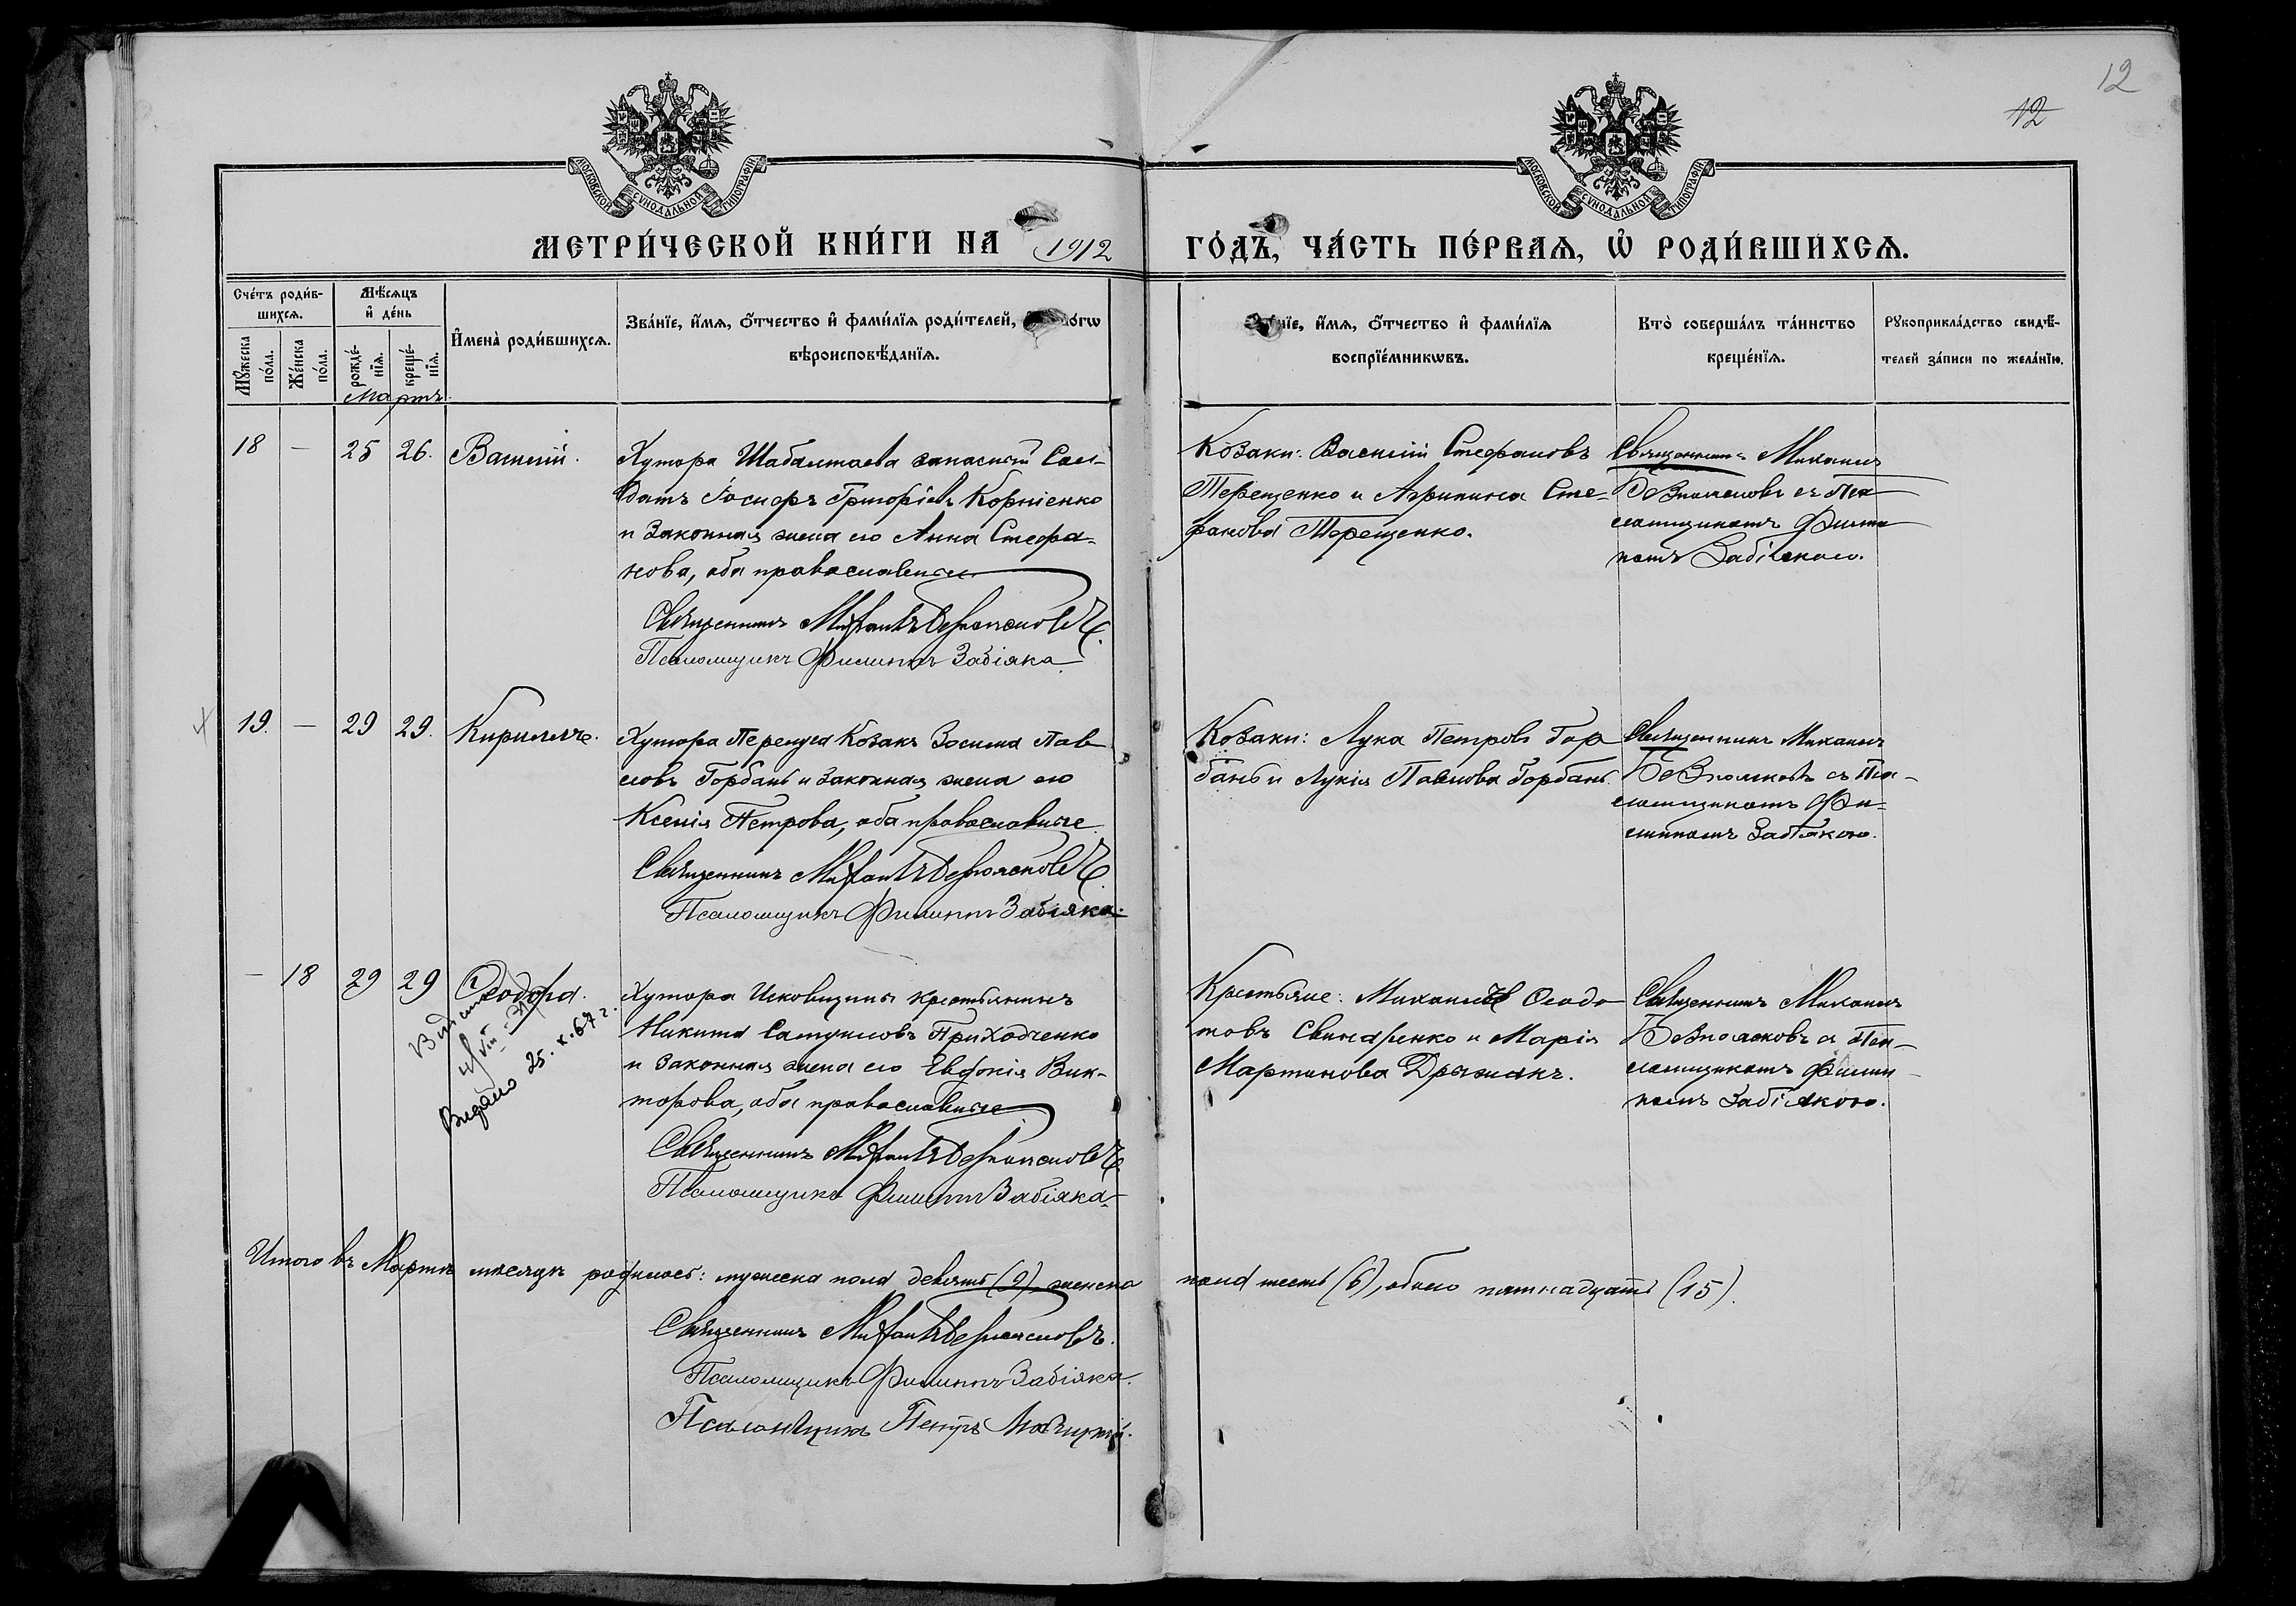 12
12
МОСКОВСКОЙ СѴНОДАЛЬНОЙ ТИПОГРАФІИ
МОСКОВСКОЙ СѴНОДАЛЬНОЙ ТИПОГРАФІИ
МЕТРИ́ЧЕСКОЙ КНИ́ГИ НА 1912 ГО́ДЪ, ЧА́СТЬ ПЕ́РВАѦ, Ѡ҆ РОДИ́ВШИХСѦ.
Сче́тъ роди́в-
шихсѧ.
Мѣ́сѧцъ
и҆ де́нь
Мꙋ́жеска
по́ла.
Же́нска
по́ла.
рожде́-
нїѧ.
креще́-
нїѧ.
И҆мена̀ роди́вшихсѧ.
Зва́нїе, и҆́мѧ, ѻ҆́тчество и҆ фамилїѧ роди́телей,
вѣроисповѣ́данїѧ.
и҆́мѧ, ѻ҆́тчество и҆ фами́лїѧ
воспрїе́мникѡвъ.
Кто̀ соверша́лъ та́инство
креще́нїѧ.
Рꙋкоприкла́дство свидѣ́-
телей за́писи по жела́нїю.
Мартъ
18 — 25 26. Василій.
Хутора Шабалтаева запасный Сол-
датъ Іосифъ Григоріевъ Корніенко
и законная жена его Анна Стефа-
нова, оба православные
Священникъ Михаилъ Безпоясковъ
Псаломщикъ Филиппъ Забіяка
Козаки: Василій Стефановъ
Терещенко и Агрипина Сте-
фанова Терещенко.
Священникъ Михаилъ
Безпоясковъ съ Пса-
ломщикомъ Филип
помъ Забіякою.
19. — 29 29. Кириллъ.
Хутора Перепуса Козакъ Зосима Пав
ловъ Горбань и законная жена его
Ксенія Петрова, оба православные
Священникъ Михаилъ Безпоясковъ
Псаломщикъ Филиппъ Забіяка.
Козаки: Лука Петровъ Гор
бань и Лукія Павлова Горбань
Священникъ Михаилъ
Безпоясковъ съ Пса-
ломщикомъ Фи-
липпомъ Забіякою.
— 18 29 29 Ѳеодора.
Видано 25. X. 67 г.
Хутора крестьянинъ
Никита Самуиловъ Приходченко
и законная жена его Евдокія Вик-
торова, оба православные
Священникъ Михаилъ Безпоясковъ
Псаломщикъ Филиппъ Забіяка
Крестьяне: Михаилъ Ѳеодо
товъ Свинаренко и Марія
Мартинова Дрыжакъ.
Священникъ Михаилъ
Безпоясковъ съ Пса-
ломщикомъ Филип-
помъ Забіякою.
Итого въ Мартѣ мѣсяцѣ родилось: мужеска пола девять (9) женска пола шесть (6), обоего пятнадцать (15).
Священникъ Михаилъ Безпоясковъ.
Псаломщикъ Филиппъ Забіяка.
Псаломщикъ Петръ